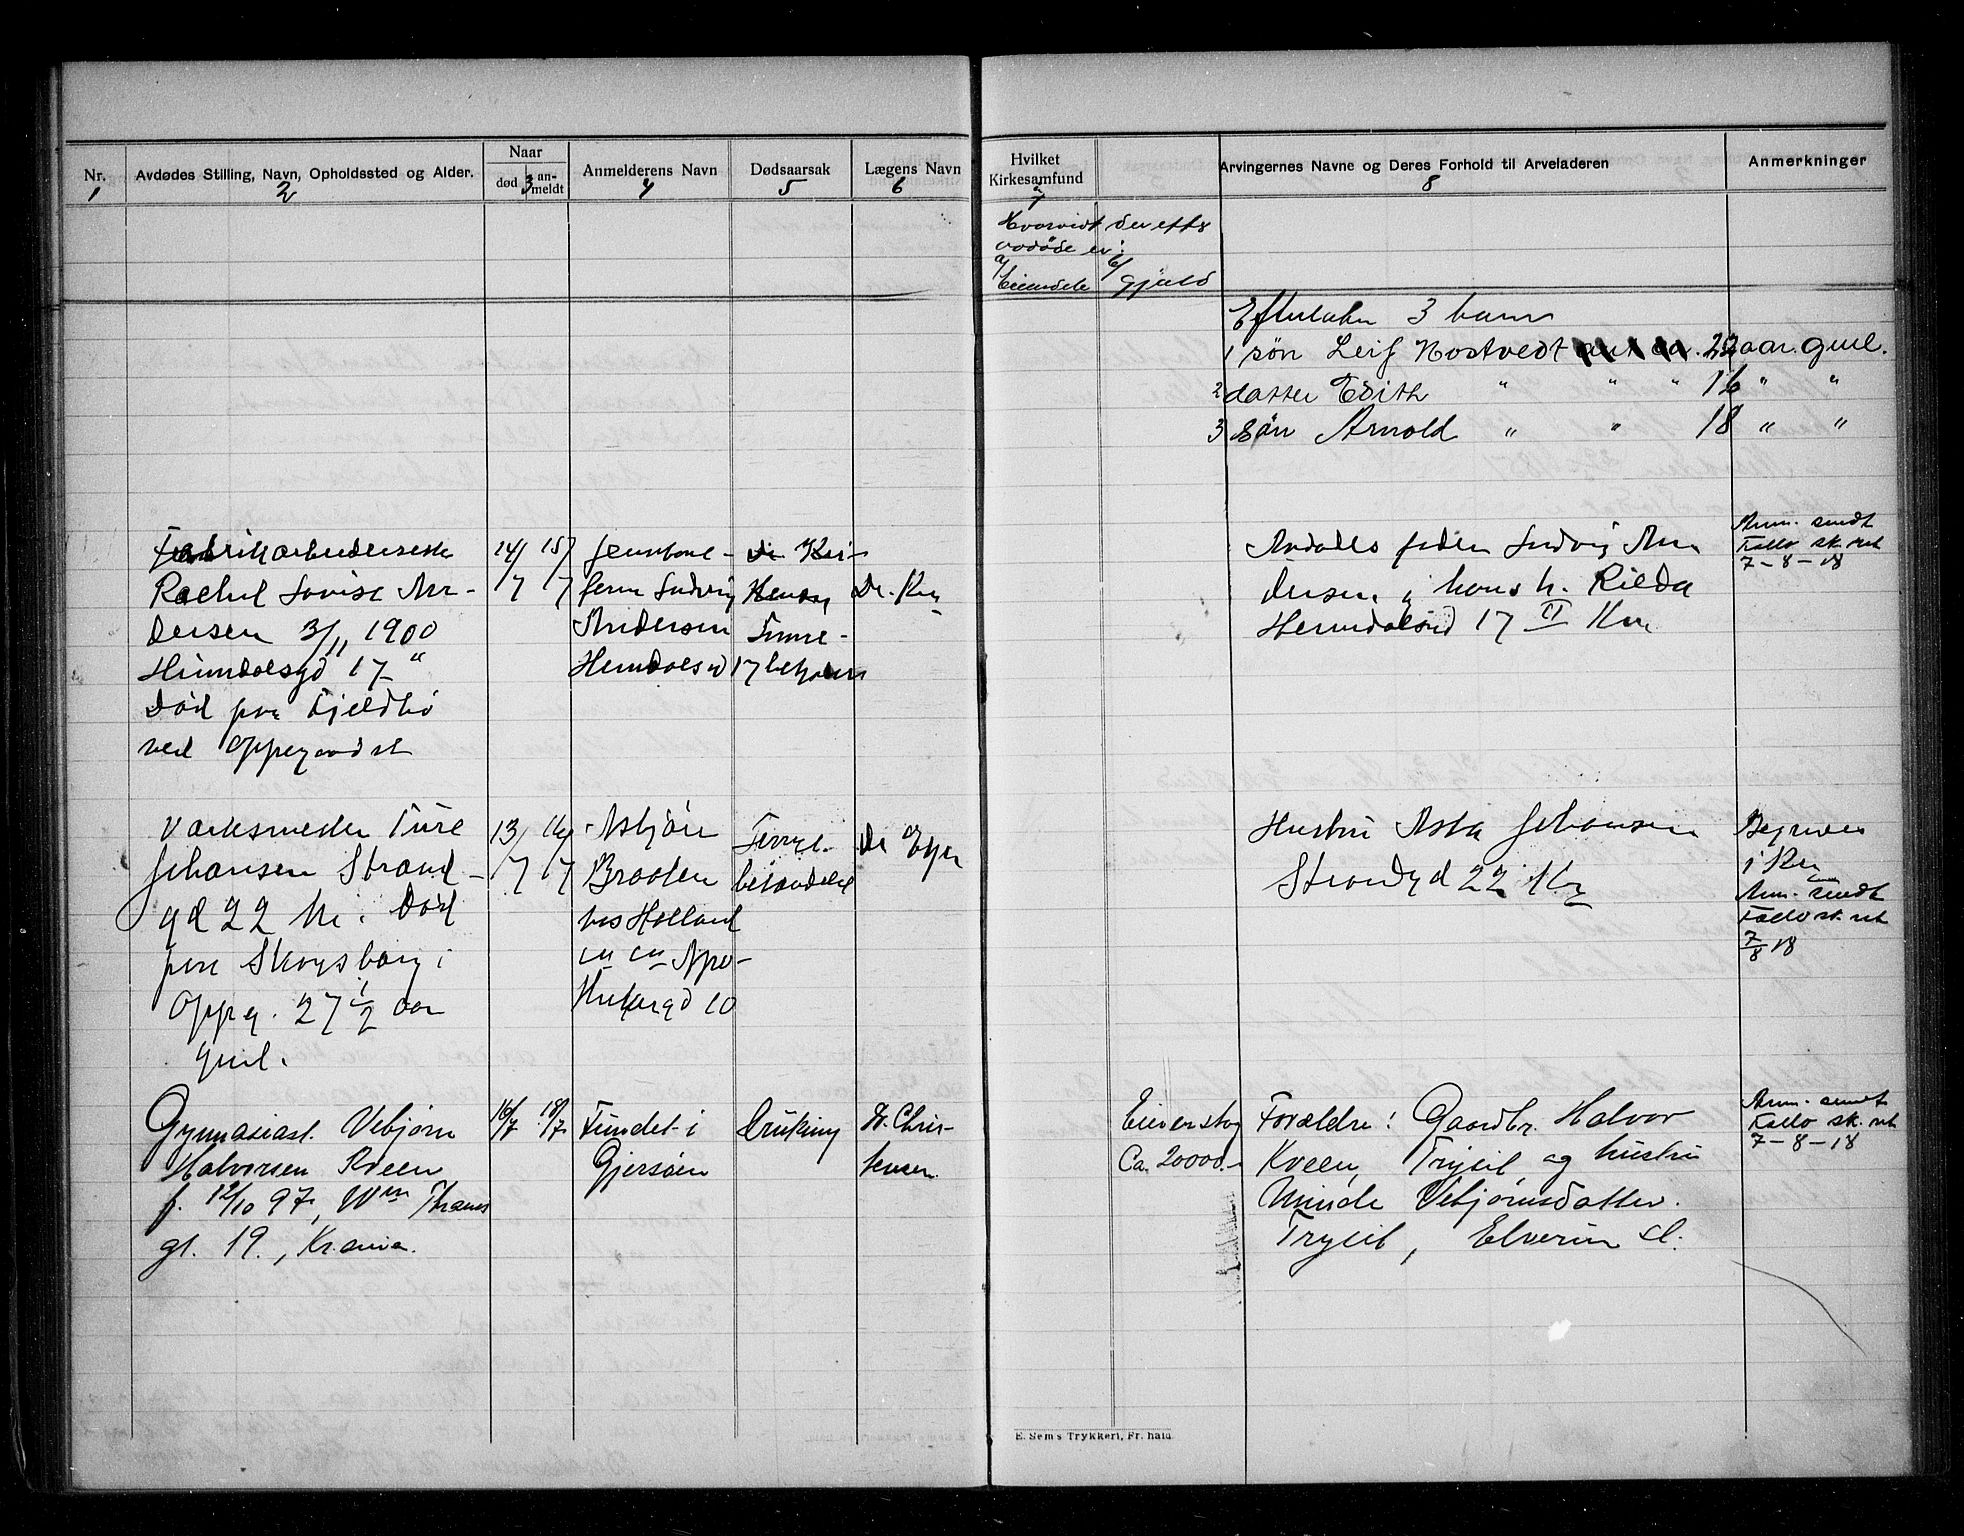 Nr.
1
Avdødes Stilling, Navn, Opholdssted og Alder.
2
Naar
død 3 an-
meldt
Anmelderens Navn
4
Dødsaarsak
5
Lægens Navn
6
Hvilket
Kirkesamfund
7
Arvingernes Navne og Deres Forhold til Arveladeren
8
Anmerkninger
Hvorvidt der efter
avdøde er:
a/ Eiendele
b/ Gjæld
Efterlater 3 barn
1 søn Leif Nostvedt 22 aar gml.
2 datter Edith " " " 16 " "
3 søn Arnold " " 18 " "
Fabrikarbeiderske
Rachel Lovise An-
dersen 3/11 1900
Heimdalsgd 17 "
Død paa Fjeldbo
ved Oppegaard st
14/7
15/7
Jernbane-
Ludvig
Andersen
Heimdalsgd 17
Dr.
Avdødes fader Ludvig An
dersen og hans h.
Heimdalsgd 17 II Kra
Anm. sendt
Follo sk. ret
7-8-18
Værksmester Ture
Johansen Strand-
gd 22 Kr. Død
paa Skogsborg i
Oppeg. 27 1/2 aar
gml.
13/7
16/7
Asbjørn
Braaten
hos Holland
Apo-
thekergd 10
Dr
Hustru Asta Johansen
Strandgd 22 Kra
Begraves
i Kra
Anm. sendt
Follo sk. ret
7/8 18
Gymnasiast. Vebjørn
Halvorsen Kveen
f. 12/10 97, Wm Thranes
gt. 19., Krania.
16/7
18/7
Fundet i
Gjersøen
Drukning
Dr. Chris-
tensen
Eiendele
Ca. 20000.-
Forældre: Gaardbr. Halvor
Kveen, Trysil og hustru
Vebjørnsdatter.
Trysil, Elverum st.
Anm. sendt
Follo sk. ret
7-8-18
E. Sem's Trykkeri, Fr.hald.